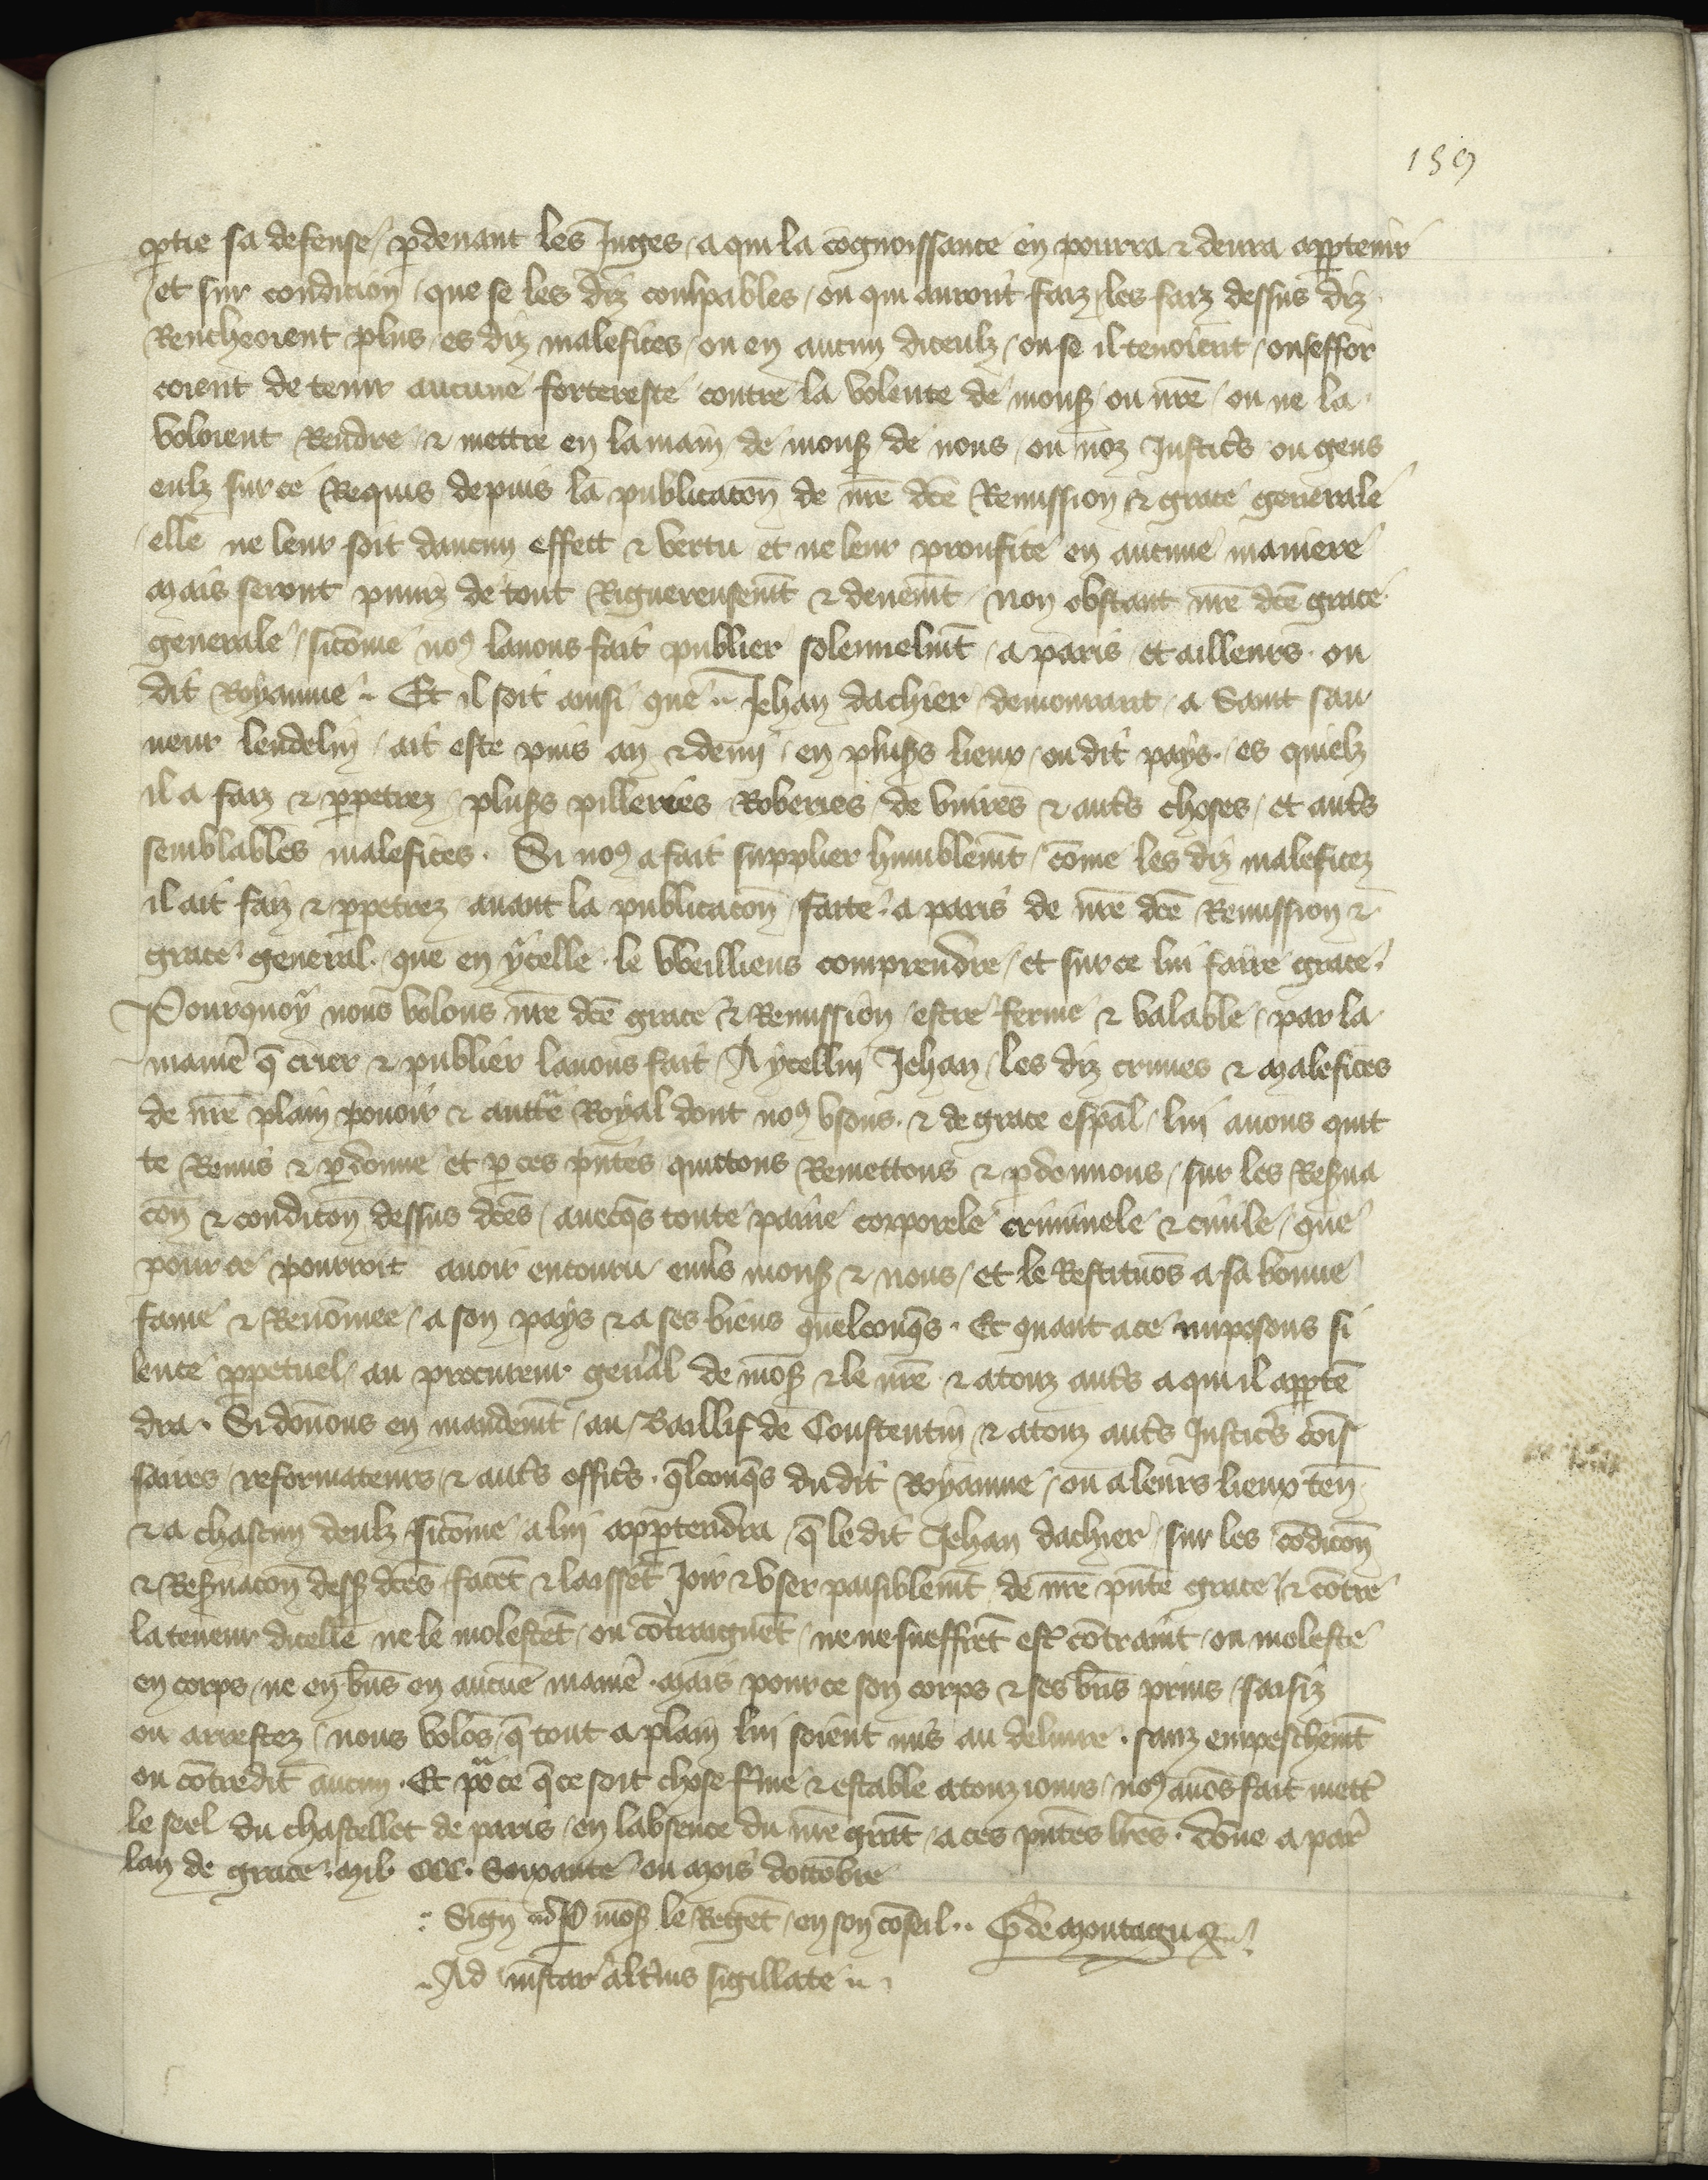 159
ꝑtie sa defense / ꝑdeuant les Juges / a qui la cognoissance en pourra ⁊ deura apꝑtenir
et sur condicion / que se les diz coulpables / ou qui auront faiz / les faiz dessus diz
Rencheoient plus / es diz malefices / ou en aucun diceulz / ou se il tenoient / ou seffor
coient de tenir aucune forteresse contre la volente de mons̄ ou nr̄e / ou ne la
voloient Rendre ⁊ mettre en la main de mons̄ de nous / ou noz Justic̄s ou gens
eulz sur ce Requis depuis la publicacōn de nr̄e dc̄e Remission ⁊ grace generale
elle ne leur soit daucun effect ⁊ vertu et ne leur proufite en aucune maniere
Mais seront puniz de tout Riguereusemt̄ ⁊ deuemt̄ / non obstant nr̄e dc̄e grace
generale / sicōme noꝰ lauons fait publier solennelmt̄ / a paris et ailleurs ou
dit Royaume .. Et il soit ainsi que .. Jehan dachier / demourant / a Saint sau
ueur lendelin / ait este puis an ⁊ demi / en plus̄s lieux / ou dit pays . es quielz
il a faiz ⁊ ꝑpetrez / plus̄s pilleries Roberies de viures ⁊ aut̄s choses / et aut̄s
semblables malefices . Si noꝰ a fait supplier humblemt̄ / cōme les diz malefices
il ait faiz ⁊ ꝑpetrez auant la publicacōn faite . a paris de nr̄e dc̄e Remission ⁊
grace general . que en ycelle le vveilliens comprendre / et sur ce lui faire grace .
Pourquoy nous volons nr̄e dc̄e grace ⁊ Remission estre ferme ⁊ valable / par la
manie᷑ q̄ crier ⁊ publier lauons fait / A ycellui Jehan / les diz crimes ⁊ Malefices
de nr̄e plain pouoir ⁊ auct̄te Royal dont noꝰ vsons . ⁊ de grace esp̄al / lui auons quit
te Remis ⁊ ꝑdonne et ꝑ ces pn̄tes quittons Remettons ⁊ ꝑdonnons / sur les Res̄ua
cōn ⁊ condicōn dessus dc̄es / auecq̄s toute paine corporele criminele ⁊ ciuile / que
pour ce pourroit auoir encouru / enūs mons̄ ⁊ nous / et le Restituōs a sa bonne
fame ⁊ Renōmee / a son pays ⁊ a ses biens quelconq̄s . Et quant a ce imposons si
lence ꝑpetuel / au procureur gen̄al de mos̄ ⁊ le nr̄e ⁊ a touz aut̄s a qui il apꝑtē
dra . Si dōnons en mandemt̄ / au Baillif de Coustentin ⁊ a touz aut̄s Justic̄s cōis
saires / reformateurs / ⁊ aut̄s offic̄s . q̄lconq̄s du dit Royaume / ou a leurs lieux ten̄
⁊ a chascun deulz / sicōme a lui apꝑtendra q̄ le dit Jehan dachier / sur les cōdicōn
⁊ Res̄uacōn dess̄ dc̄es facēt ⁊ laissēt Joir ⁊ vser paisiblemt̄ de nr̄e pn̄te grace / ⁊ cōtre
la teneur dicelle ne le molestēt / ou cōtraignēt / ne ne sueffrēt est̄ cōtraint / ou moleste
en corps / ne en bn̄s en aucūe manie᷑ . Mais pour ce son corps ⁊ ses bn̄s prins / saisiz
ou arrestez / nous volōs / q̄ tout a plain lui soient mis au deliure . sanz empeschemt̄
ou cōtredit aucun . Et po᷑ ce q̄ ce soit chose f̄me ⁊ estable a touz iours / noꝰ auōs fait mett̄
le seel du chastellet de paris / en labsence du nr̄e grāt / a ces pn̄tes lr̄es . Dōne a par̄
lan de grace . Mil CCC . Soixante ou Mois doctobre
Sign̄ .. ꝑ mos̄ le Regēt / en son cōseil .. G de Montagu
.. Ad instar alt̄ius sigillate ..